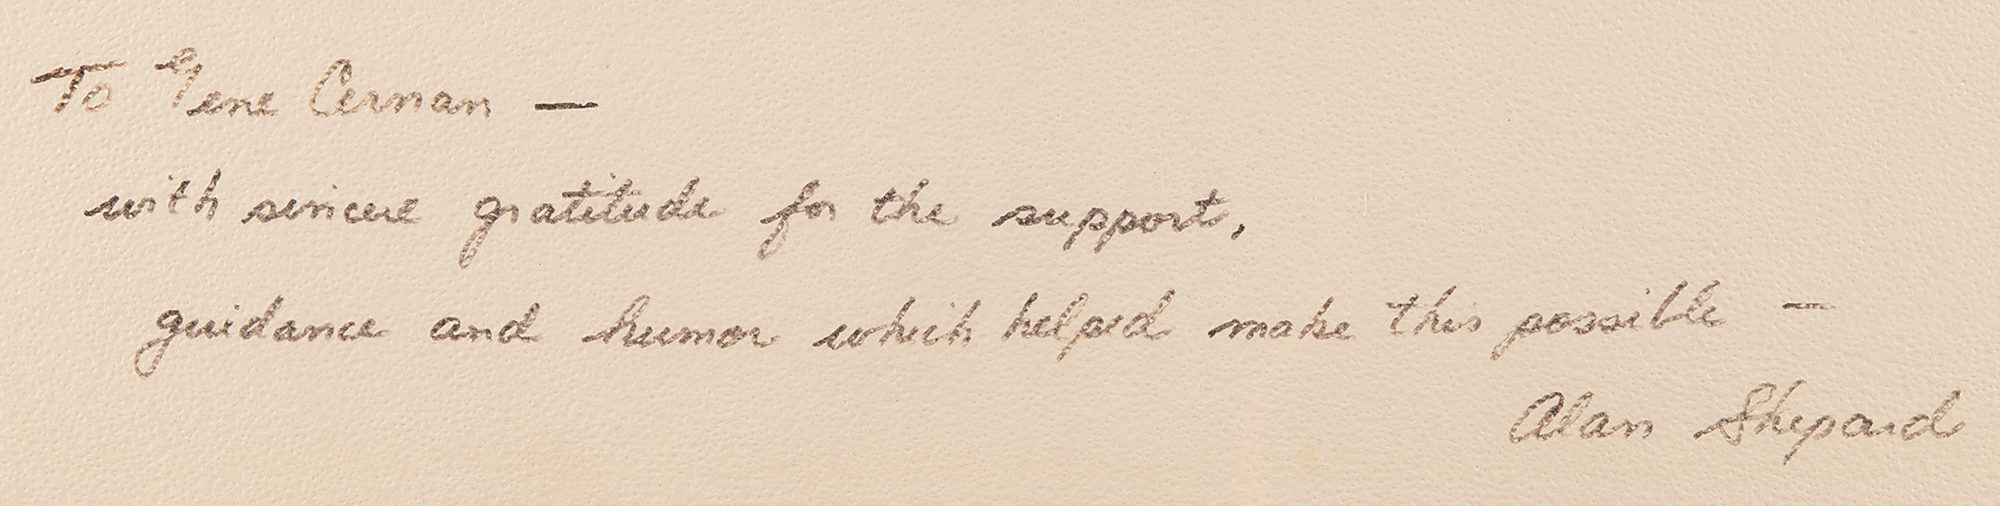 To Gene Cernan —
with sincere gratitude for the support,
guidance and humor which helped make this possible —
Alan Shepard